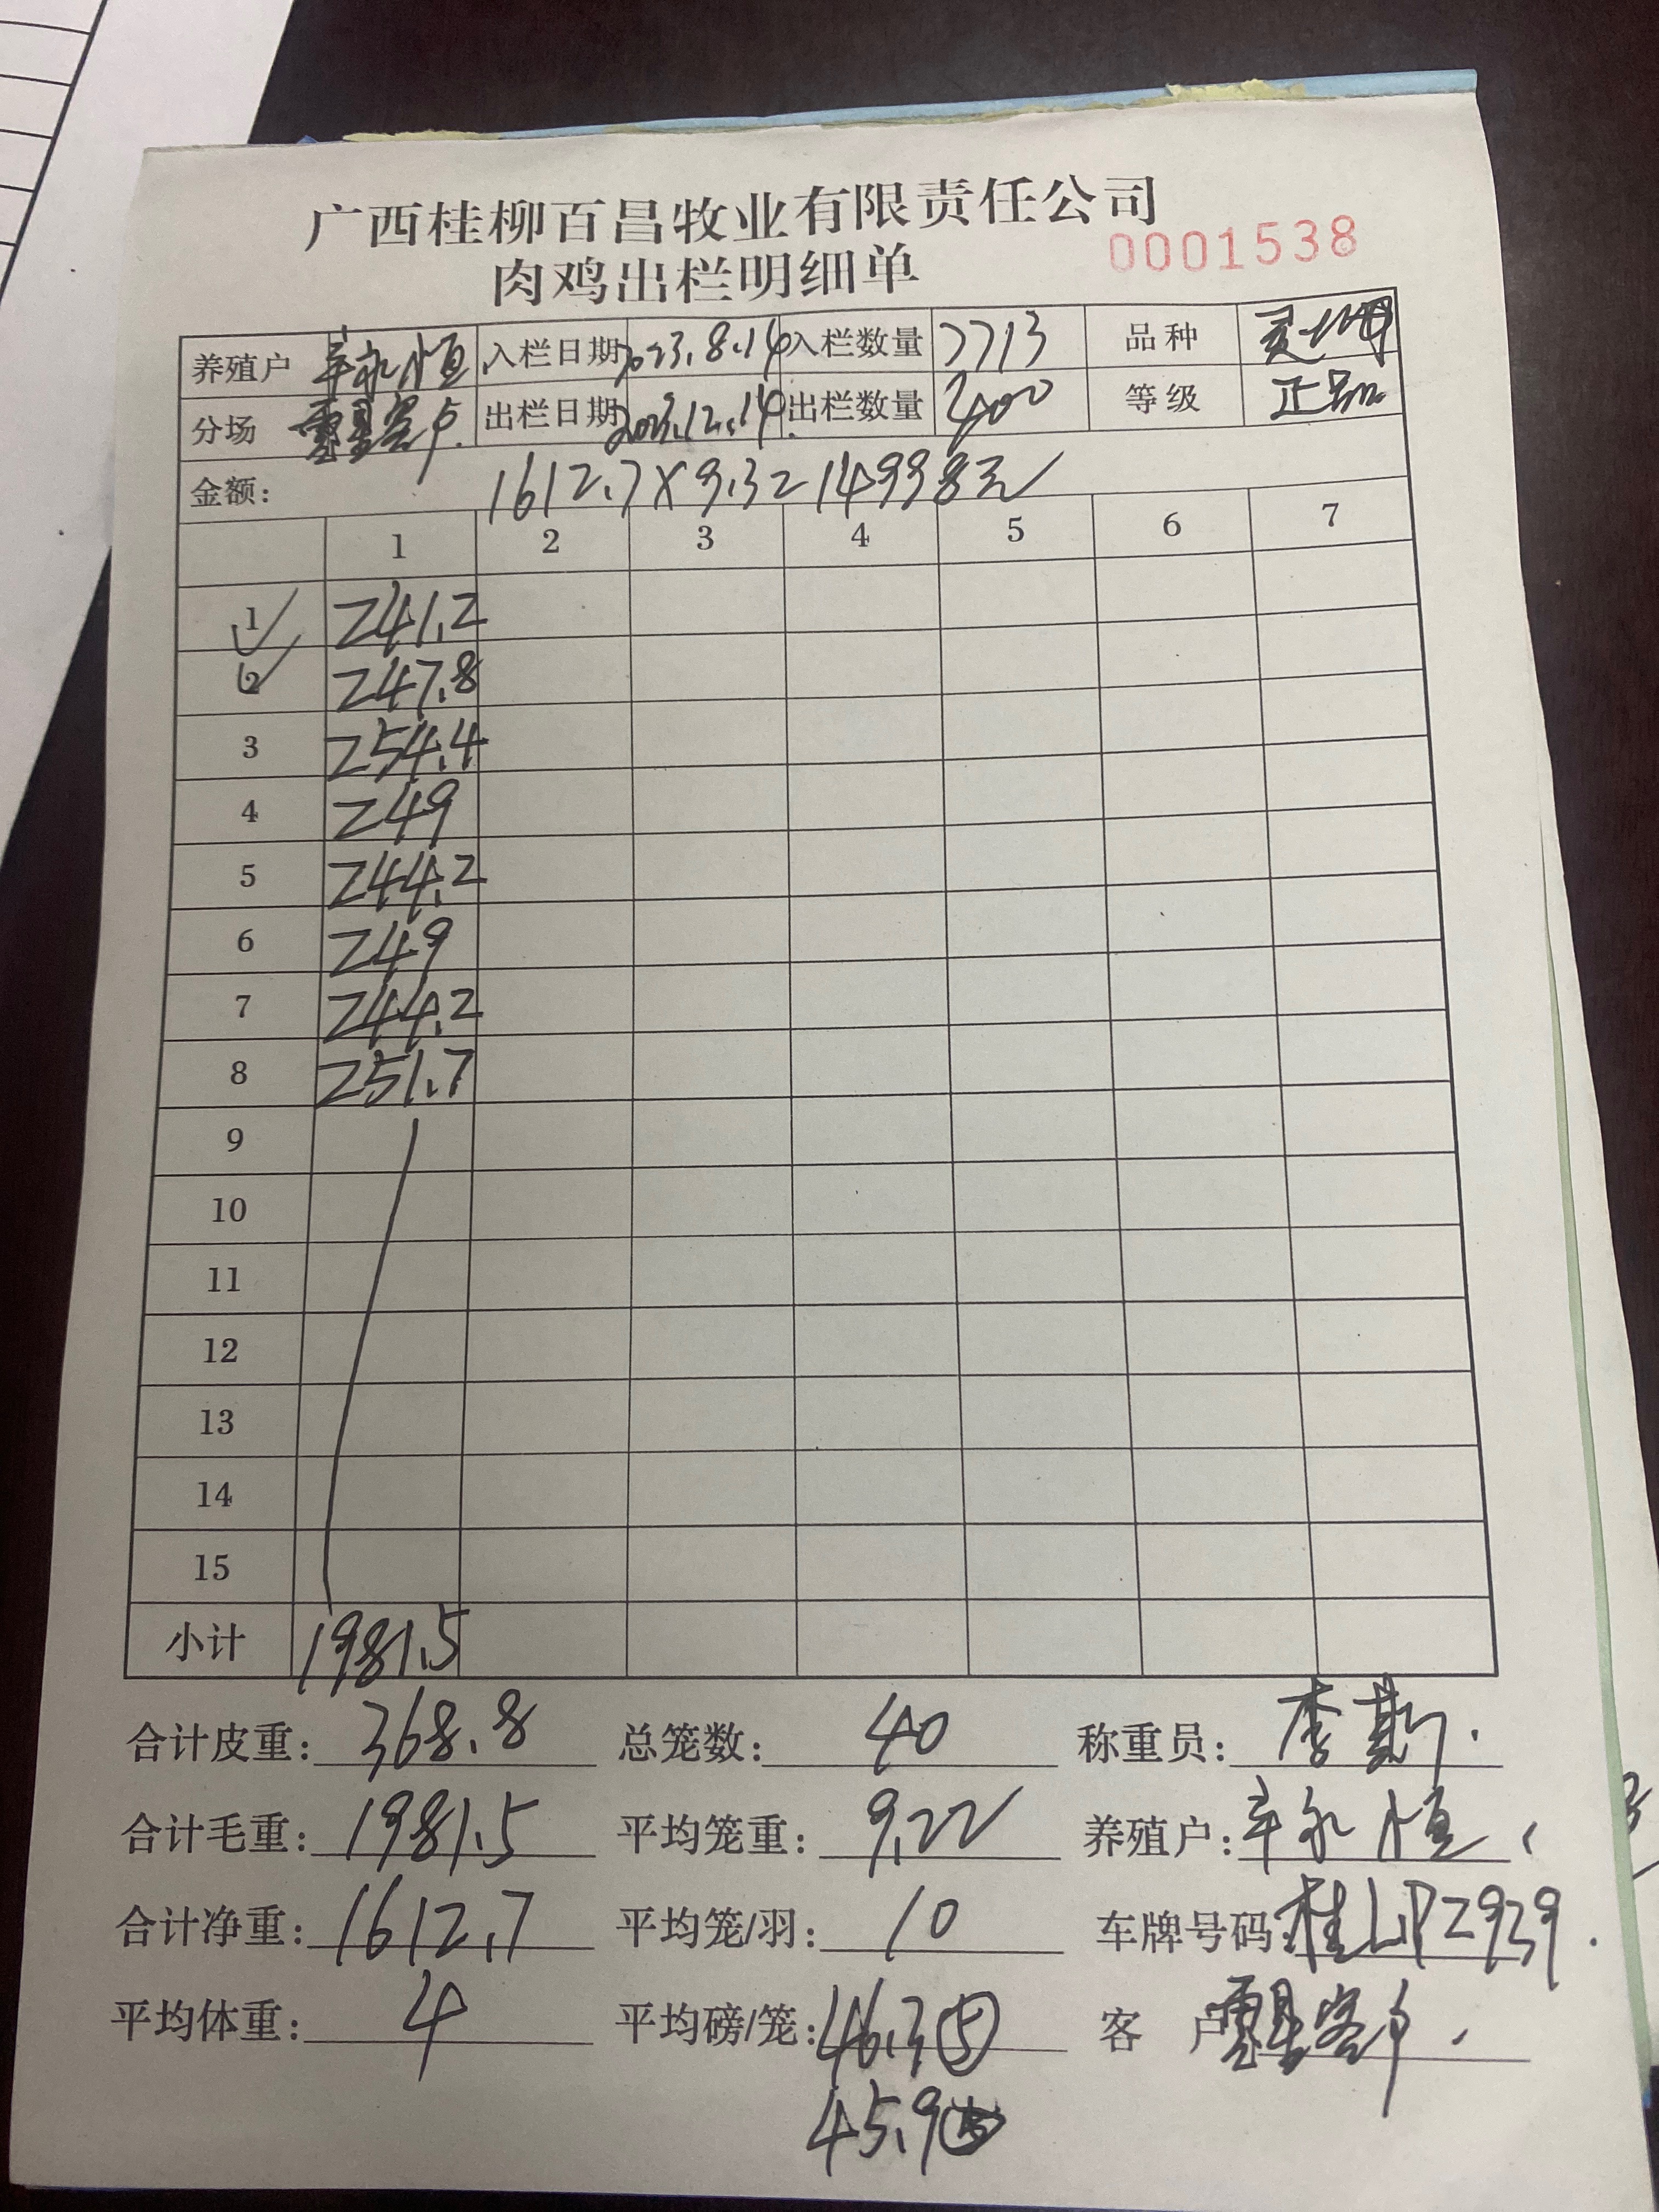 广西桂柳百昌牧业有限责任公司
肉鸡出栏明细单 0001538
养殖户 辛永恒 入栏日期 2023.8.14 入栏数量 7713 品种
分场 零星客户. 出栏日期 2023.12.14. 出栏数量 400 等级 正品
金额: 1612.7×9.3=14998元
1 2 3 4 5 6 7
1 241.2
2 247.8
3 254.4
4 249
5 244.2
6 249
7 244.2
8 251.7
9
10
11
12
13
14
15
小计 1981.5
合计皮重: 368.8 总笼数: 40 称重员: 李斯.
合计毛重: 1981.5 平均笼重: 9.22 养殖户: 辛永恒
合计净重: 1612.7 平均笼/羽: 10 车牌号码: 桂LP2939.
平均体重: 4 平均磅/笼: 46.3⑤ 客户 零星客户.
45.9⑤